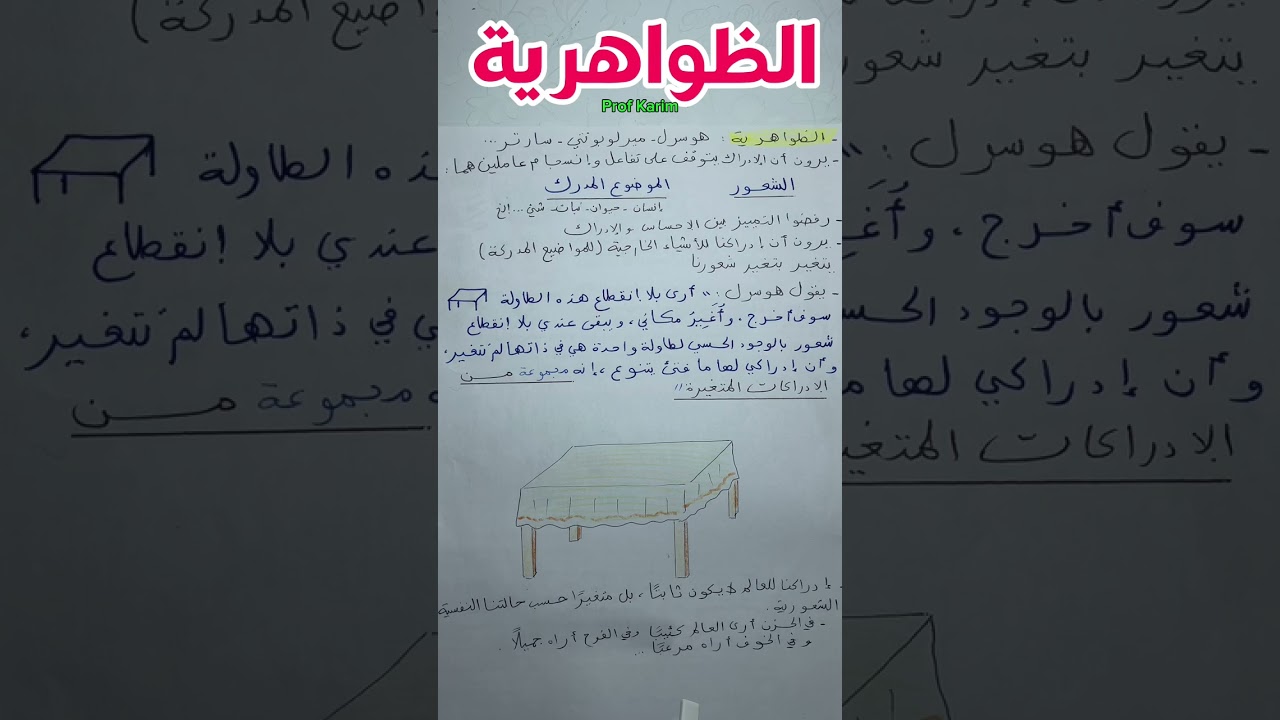 الظواهرية
Prof Karim
- الظواهرية : هوسرل - ميرلوبونتي - سارتر ...
- يرون أن الادراك يتوقف على تفاعل وانسجام عاملين هما :
الشعور الموضوع المدرك
إنسان - حيوان - نبات - شيئ ... إلخ
- رفضوا التمييز بين الاحساس والادراك
- يرون أن إدراكنا للأشياء الخارجية (للمواضيع المدركة)
يتغير بتغير شعورنا
- يقول هوسرل : " أرى بلا إنقطاع هذه الطاولة
سوف أخرج . وأُغَيِرُ مكاني ، ويبقى عندي بلا إنقطاع
شعور بالوجود الحسي لطاولة واحدة هي في ذاتها لم تتغير،
وأن إدراكي لها ما فتئ يتنوع ، إنه مجموعة من
الادراكات المتغيرة "
- إدراكنا للعالم لا يكون ثابتًا ، بل متغيرًا حسب حالتنا النفسية
الشعورية .
- في الحزن أرى العالم كئيبًا وفي الفرح أراه جميلًا .
وفي الخوف أراه مرعبًا ...